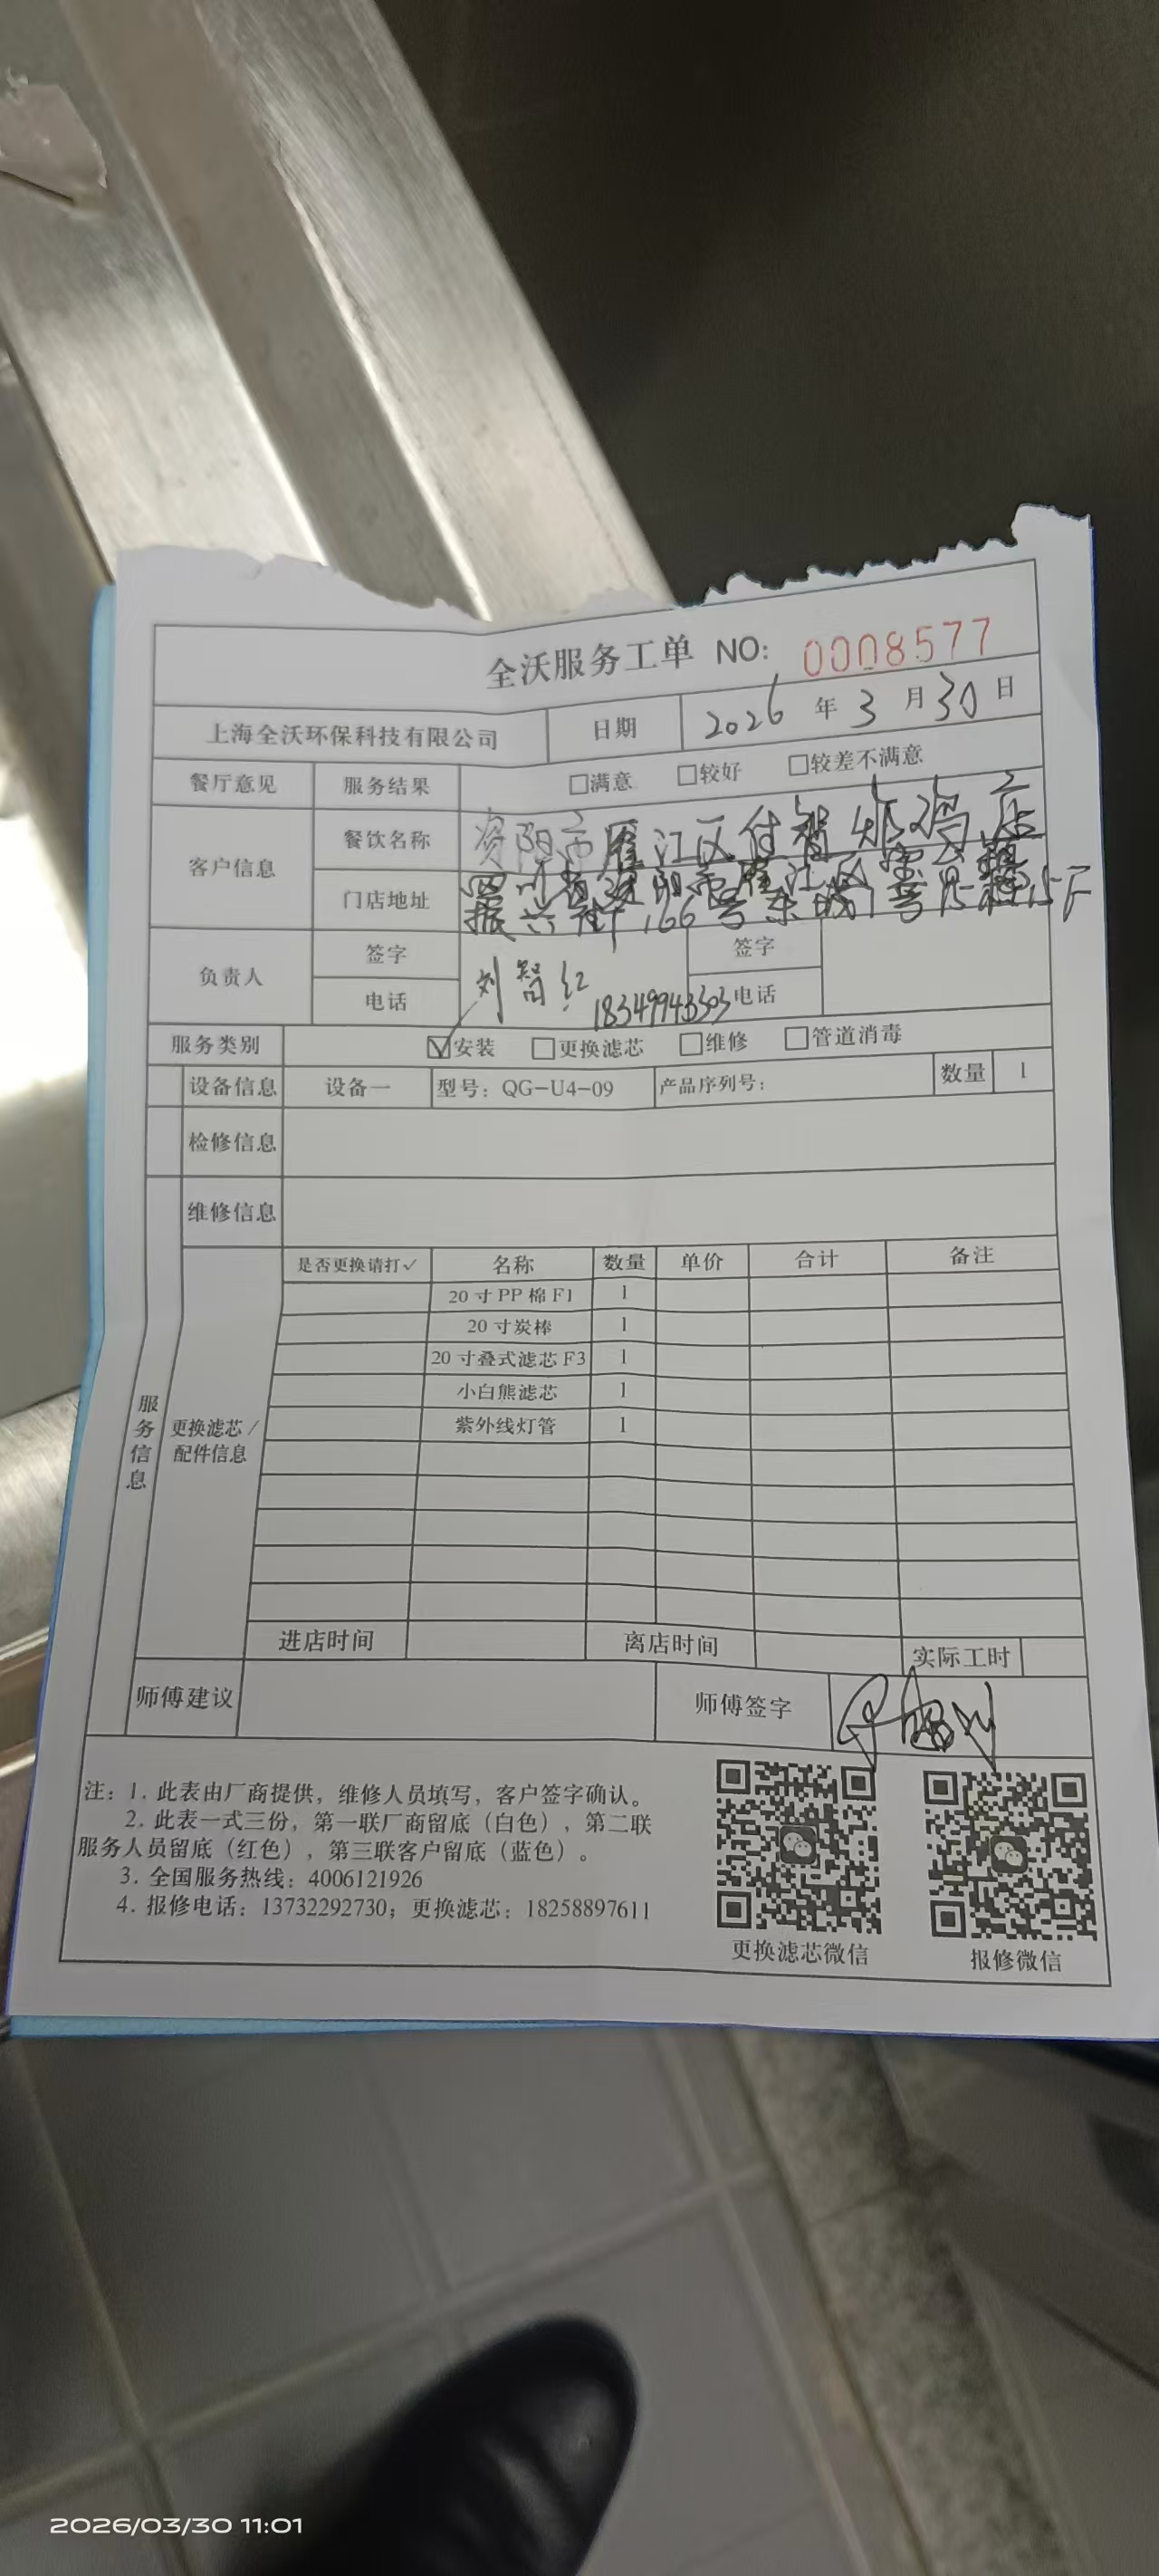 全沃服务工单 NO: 0008577
上海全沃环保科技有限公司 日期 2026 年 3 月 30 日
餐厅意见 服务结果 □满意 □较好 □较差不满意
客户信息 餐饮名称 资阳市雁江区付智炸鸡店
门店地址 四川省资阳市雁江区
振兴街166号东城1号
负责人 签字 刘智红 签字
电话 电话
服务类别 ☑安装 □更换滤芯 □维修 □管道消毒
设备信息 设备一 型号：QG-U4-09 产品序列号： 数量 1
检修信息
维修信息
服务信息
更换滤芯/
配件信息
是否更换请打✓ 名称 数量 单价 合计 备注
20寸PP棉F1 1
20寸炭棒 1
20寸叠式滤芯F3 1
小白熊滤芯 1
紫外线灯管 1
进店时间 离店时间 实际工时
师傅建议 师傅签字
注：1. 此表由厂商提供，维修人员填写，客户签字确认。
2. 此表一式三份，第一联厂商留底（白色），第二联
服务人员留底（红色），第三联客户留底（蓝色）。
3. 全国服务热线：4006121926
4. 报修电话：13732292730；更换滤芯：18258897611
更换滤芯微信 报修微信
2026/03/30 11:01